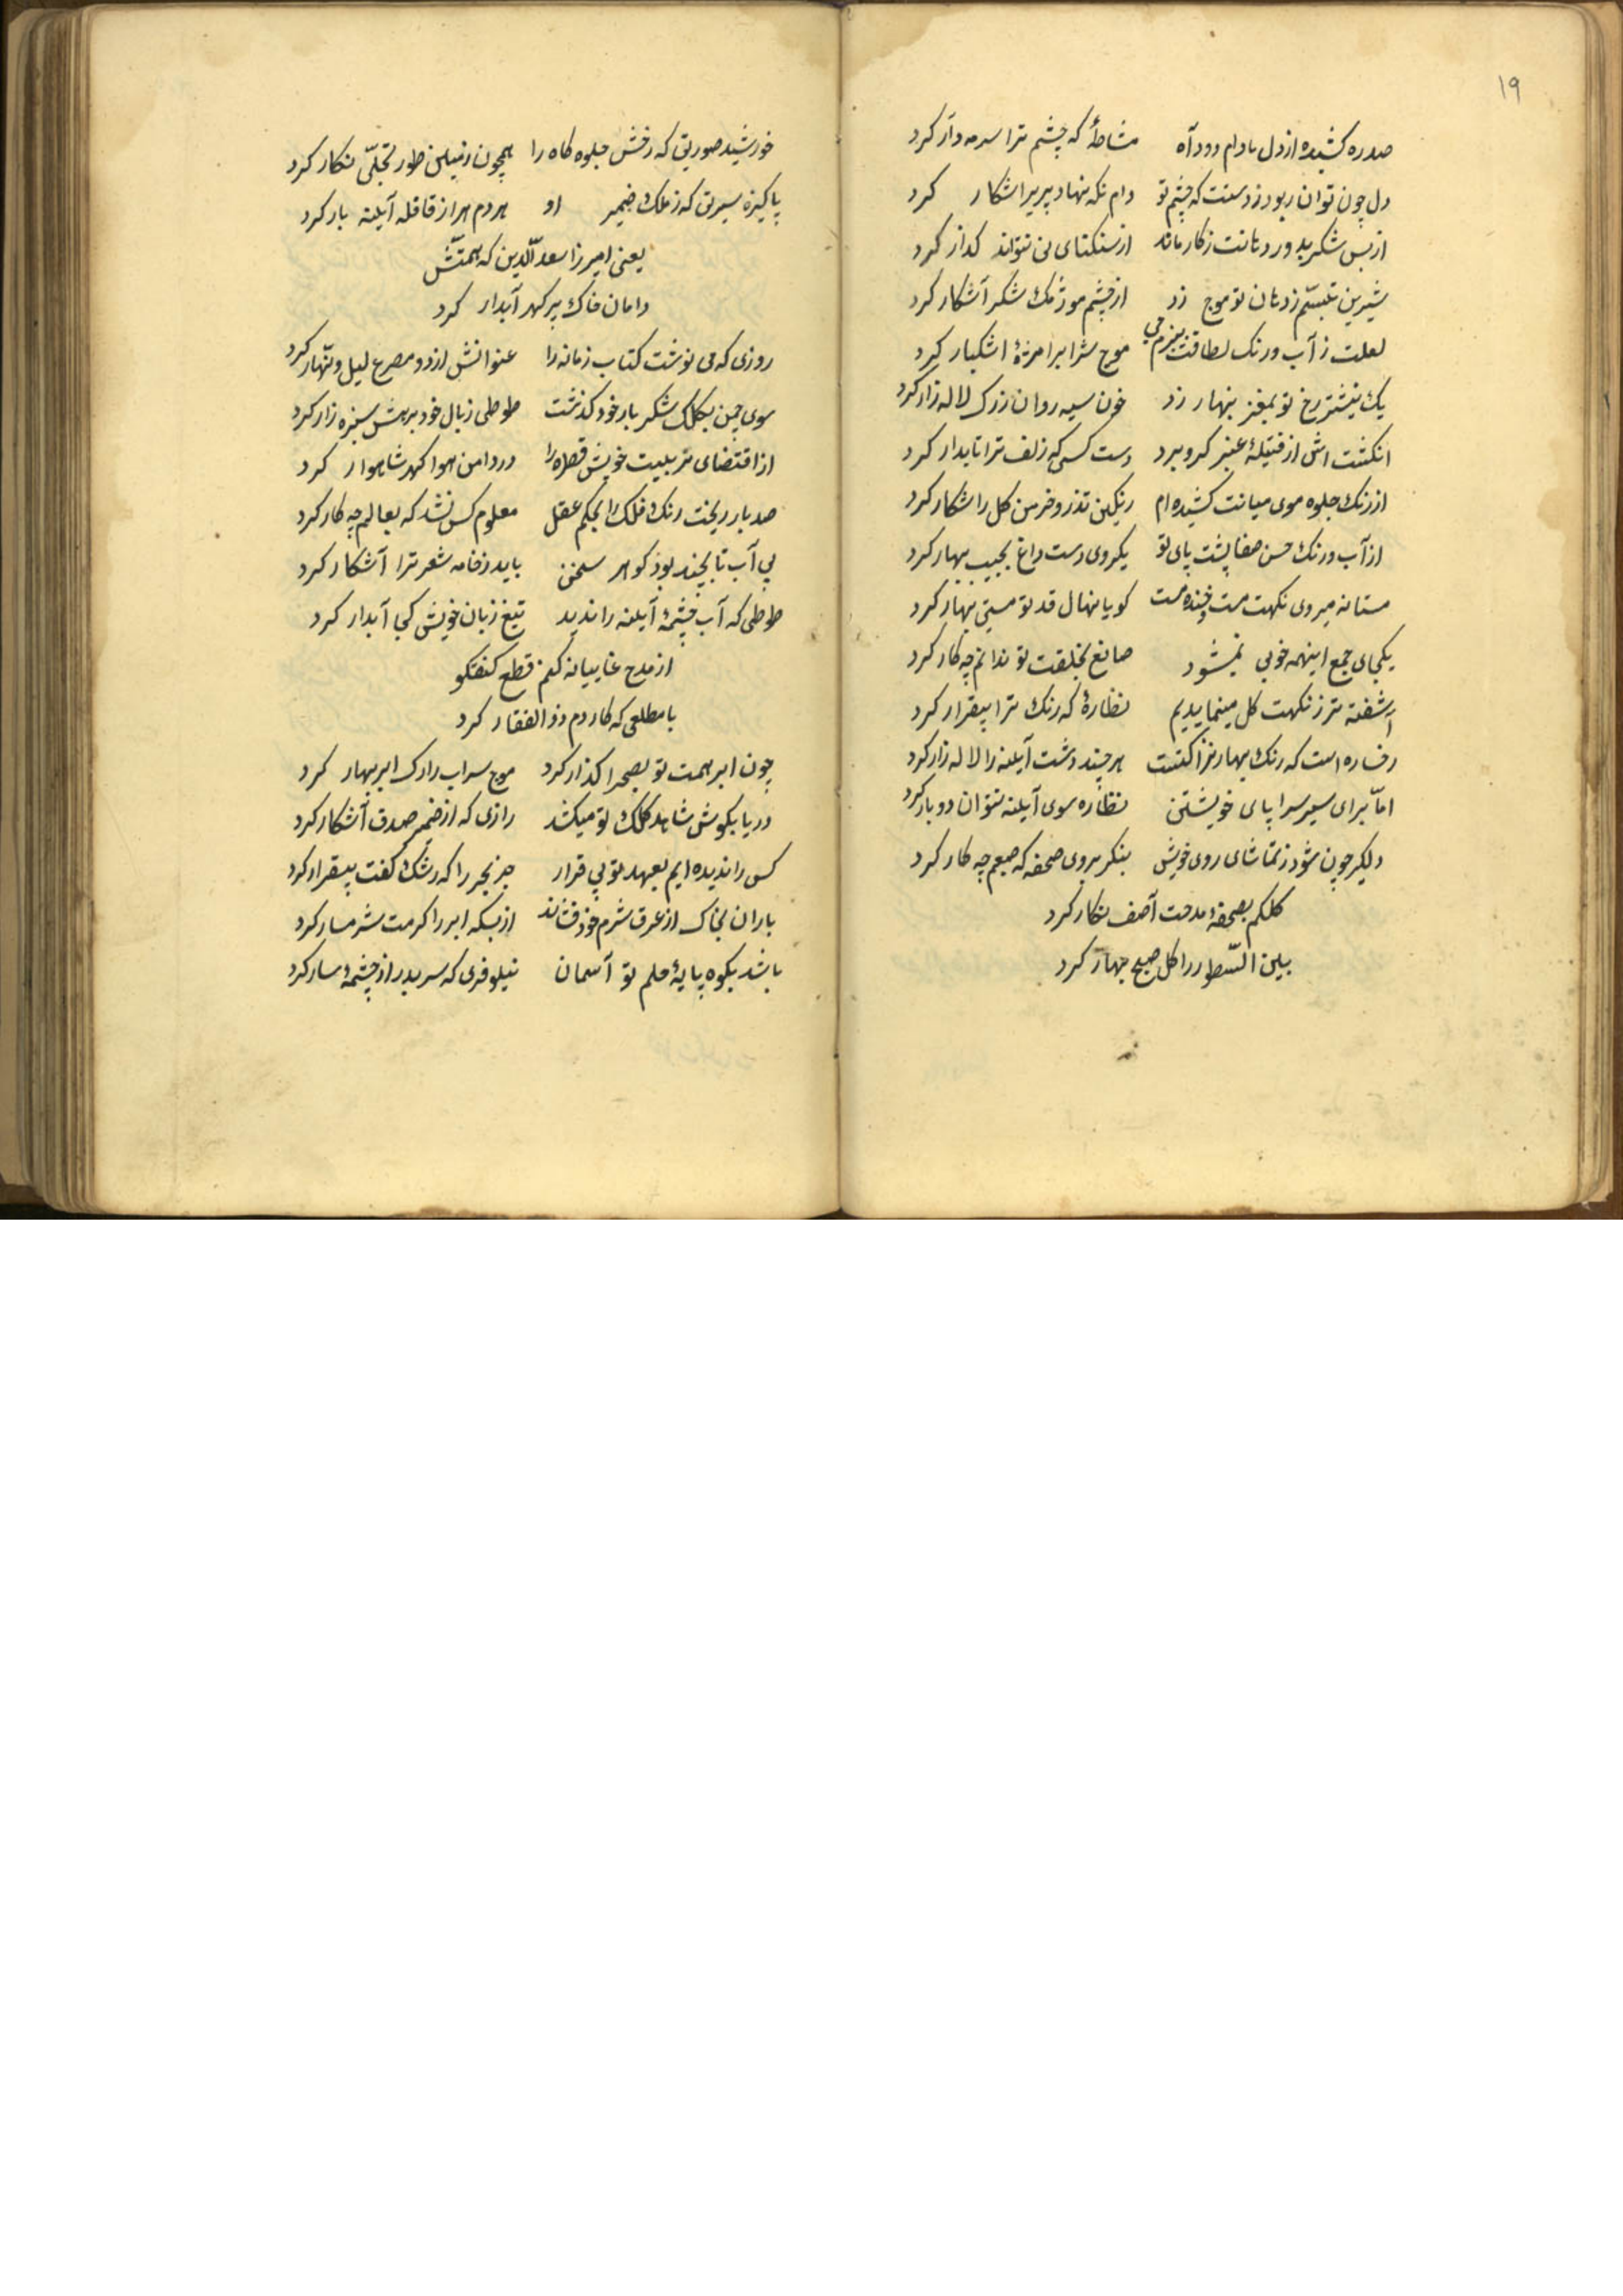 ۱۹
صدره کشیده از دل بادام دود آه مشاطهٔ که چشم ترا سرمه دار کرد
دل چون توان ربود ز دستت که چشم تو دام نکه نهاد و پریرا شکار کرد
از بس شکر بدور دهانت ز کار ماند از تنکنای نی نتواند کذار کرد
شیرین تبسّم ز دهان تو موج زد از چشم مور نمک شکر آشکار کرد
لعلت ز آب و رنک لطافت ببزم می موج شرابرا مژهٔ اشکبار کرد
یک نیشتر رخ تو بمغز بهار زد خون سیه روان ز رک لاله زار کرد
انکشتش از فتیلهٔ عنبر کرو برد دست کسی که زلف ترا تابدار کرد
از رنک جلوه موی میانت کشیده ام رنکین تذرو خرمن کل را شکار کرد
از آب و رنک حسن صفا پشت پای تو یکروی دست داغ بجیب بهار کرد
مستانه میروی نکهت مست و خنده مست کویا نهال قد تو مستی بهار کرد
یکجای جمع اینهمه خوبی نمیشود صانع بخلقت تو ندانم چه کار کرد
آشفته تر ز نکهت کل مینماییدیم نظارهٔ که رنک ترا بیقرار کرد
رخساره است که رنک بهار نزاکتست هر چند دشت آینه را لاله زار کرد
امّا برای سیر سراپای خویشتن نظاره سوی آینه نتوان دوبار کرد
دلکیر چون شود ز تماشای روی خویش بنکر بروی صحفه که صبعم چه کار کرد
کلکم بصحفهٔ مدحت آصف نکار کرد
بین السّطور را کل صبح بهار کرد
خورشید صورتی که رخش جلوه کاه را همچون زمین طور تجلّی نکار کرد
پاکیزه سیرتی که ز ملک ضمیر او هر دم هزار قافله آینه بار کرد
یعنی امیرزا سعد الّدین که همّتش
دامان خاک پر کهر آبدار کرد
روزی که می نوشت کتاب زمانه را عنوانش از دو مصرع لیل و نهار کرد
سوی چمن بکلک شکر بار خود کذشت طوطی ز بال خود برهش سبزه زار کرد
از اقتضای تربیت خویش قطره را در دامن هوا کهر شاهوار کرد
صد بار ریخت رنک فلک را بحکم عقل معلوم کس نشد که بعالم چه کار کرد
بی آب تا بچند بود کوهر سخن باید ز خامه شعر ترا آشکار کرد
طوطی که آب چشمهٔ آینه را ندید تیغ زبان خویش کی آبدار کرد
از مدح غایبانه کنم قطع کفتکو
با مطلعی که کار دم ذو الفقار کرد
چون ابر همت تو بصحرا کذار کرد موج سراب را رک ابر بهار کرد
دریا بکوش شاهد کلک تو میکشد رازی که از ضمیر صدف آشکار کرد
کس را ندیده ایم بعهد تو بی قرار جز بحر را که رشک کفت بیقرار کرد
باران بخاک از عرق شرم خود فشاند از بسکه ابر را کرمت شرمسار کرد
باشد بکوه پایهٔ حلم تو آسمان نیلوفری که سر بدر از چشمه سار کرد